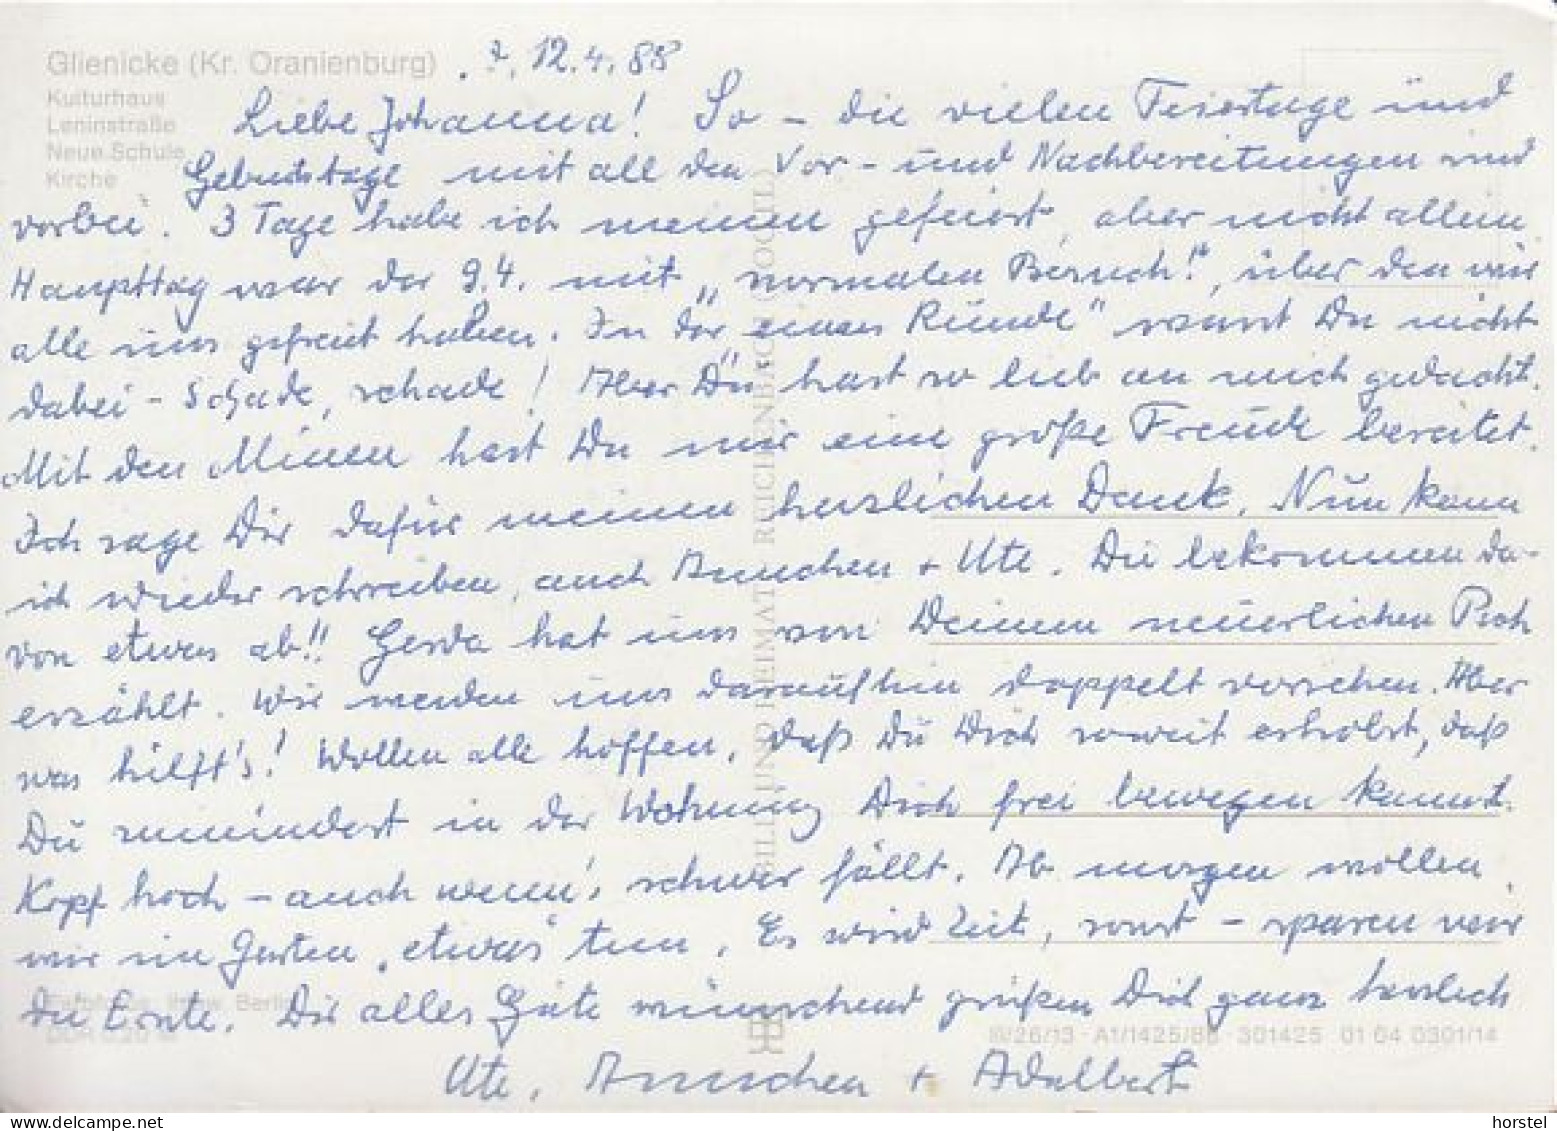 Glienicke (Kr. Oranienburg)
Kulturhaus
Leninstraße
Neue Schule
Kirche
12.4.88
Liebe Johanna! So – die vielen Feiertage und
Geburtstage mit all den Vor- und Nachbereitungen sind
vorbei. 3 Tage habe ich meinen gefeiert, aber nicht allein.
Haupttag war der 9.4. mit „normalen Besuch!", über den wir
alle uns gefreut haben. In der Runde" warst Du nicht
dabei – Schade, schade! Aber Du hast so lieb an mich gedacht.
Mit den Minen hast Du mir eine große Freude bereitet.
Ich sage Dir dafür meinen herzlichen Dank. Nun kann
ich wieder schreiben, auch Annchen + Ute. Die bekommen da-
von etwas ab!! Gerda hat uns von Deinem neuerlichen Pech
erzählt. Wir werden uns daraufhin doppelt vorsehen. Aber
was hilft's! Wollen alle hoffen, daß Du Dich soweit erholst, daß
Du zumindest in der Wohnung Dich frei bewegen kannst.
Kopf hoch – auch wenn's schwer fällt. Ab morgen wollen
wir im Garten „etwas" tun. Es wird Zeit, sonst – sparen wir
die Ernte. Dir alles Gute wünschend grüßen Dich ganz herzlich
Ute, Annchen + Adalbert
BILD UND HEIMAT REICHENBACH (VOGTL)
Berlin
III/26/13 · A1/1425/86 · 301425 01 04 0301/14
horstel